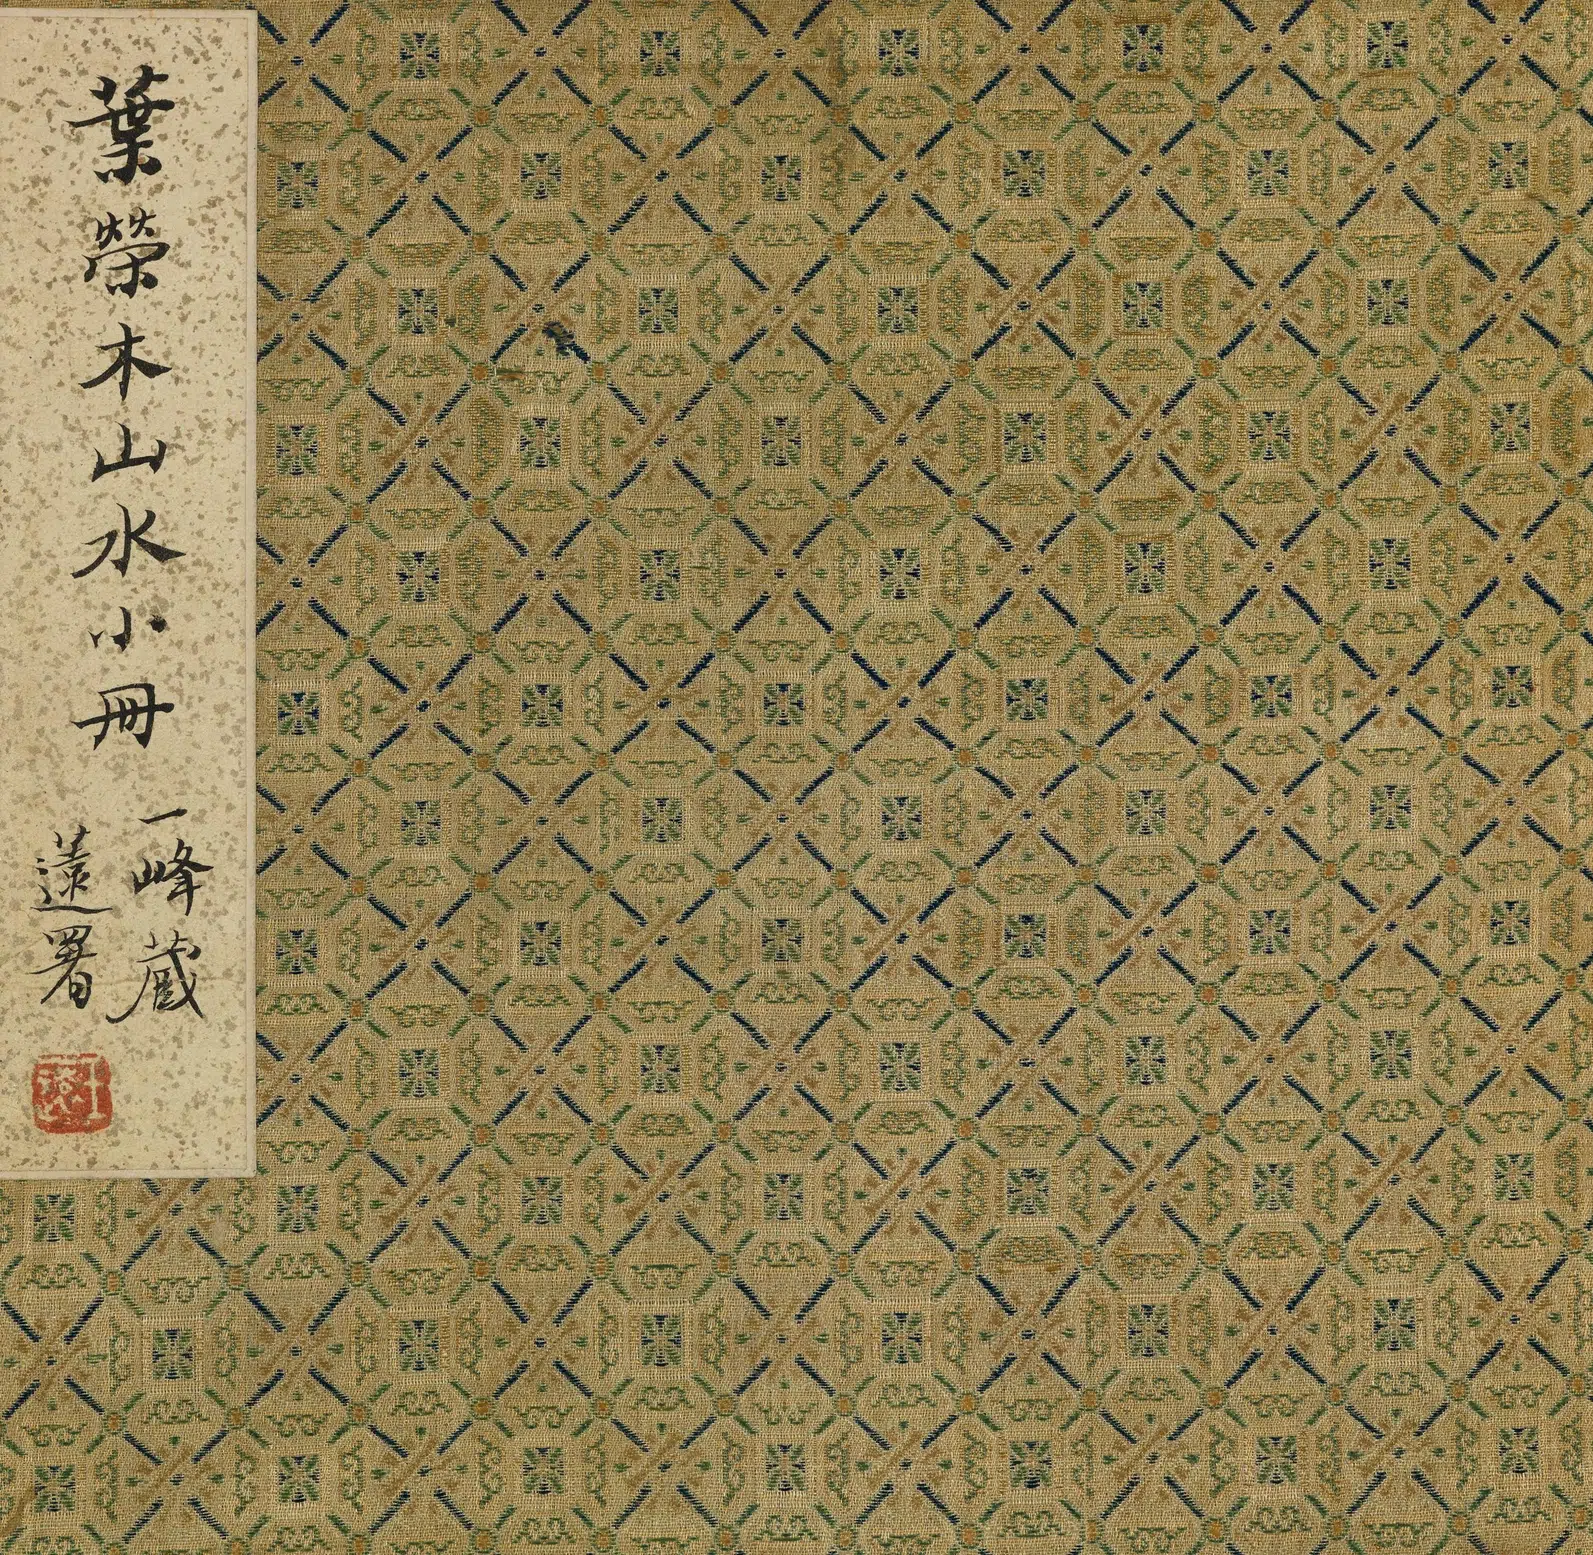 葉榮木山水小冊
一峰藏
薳署